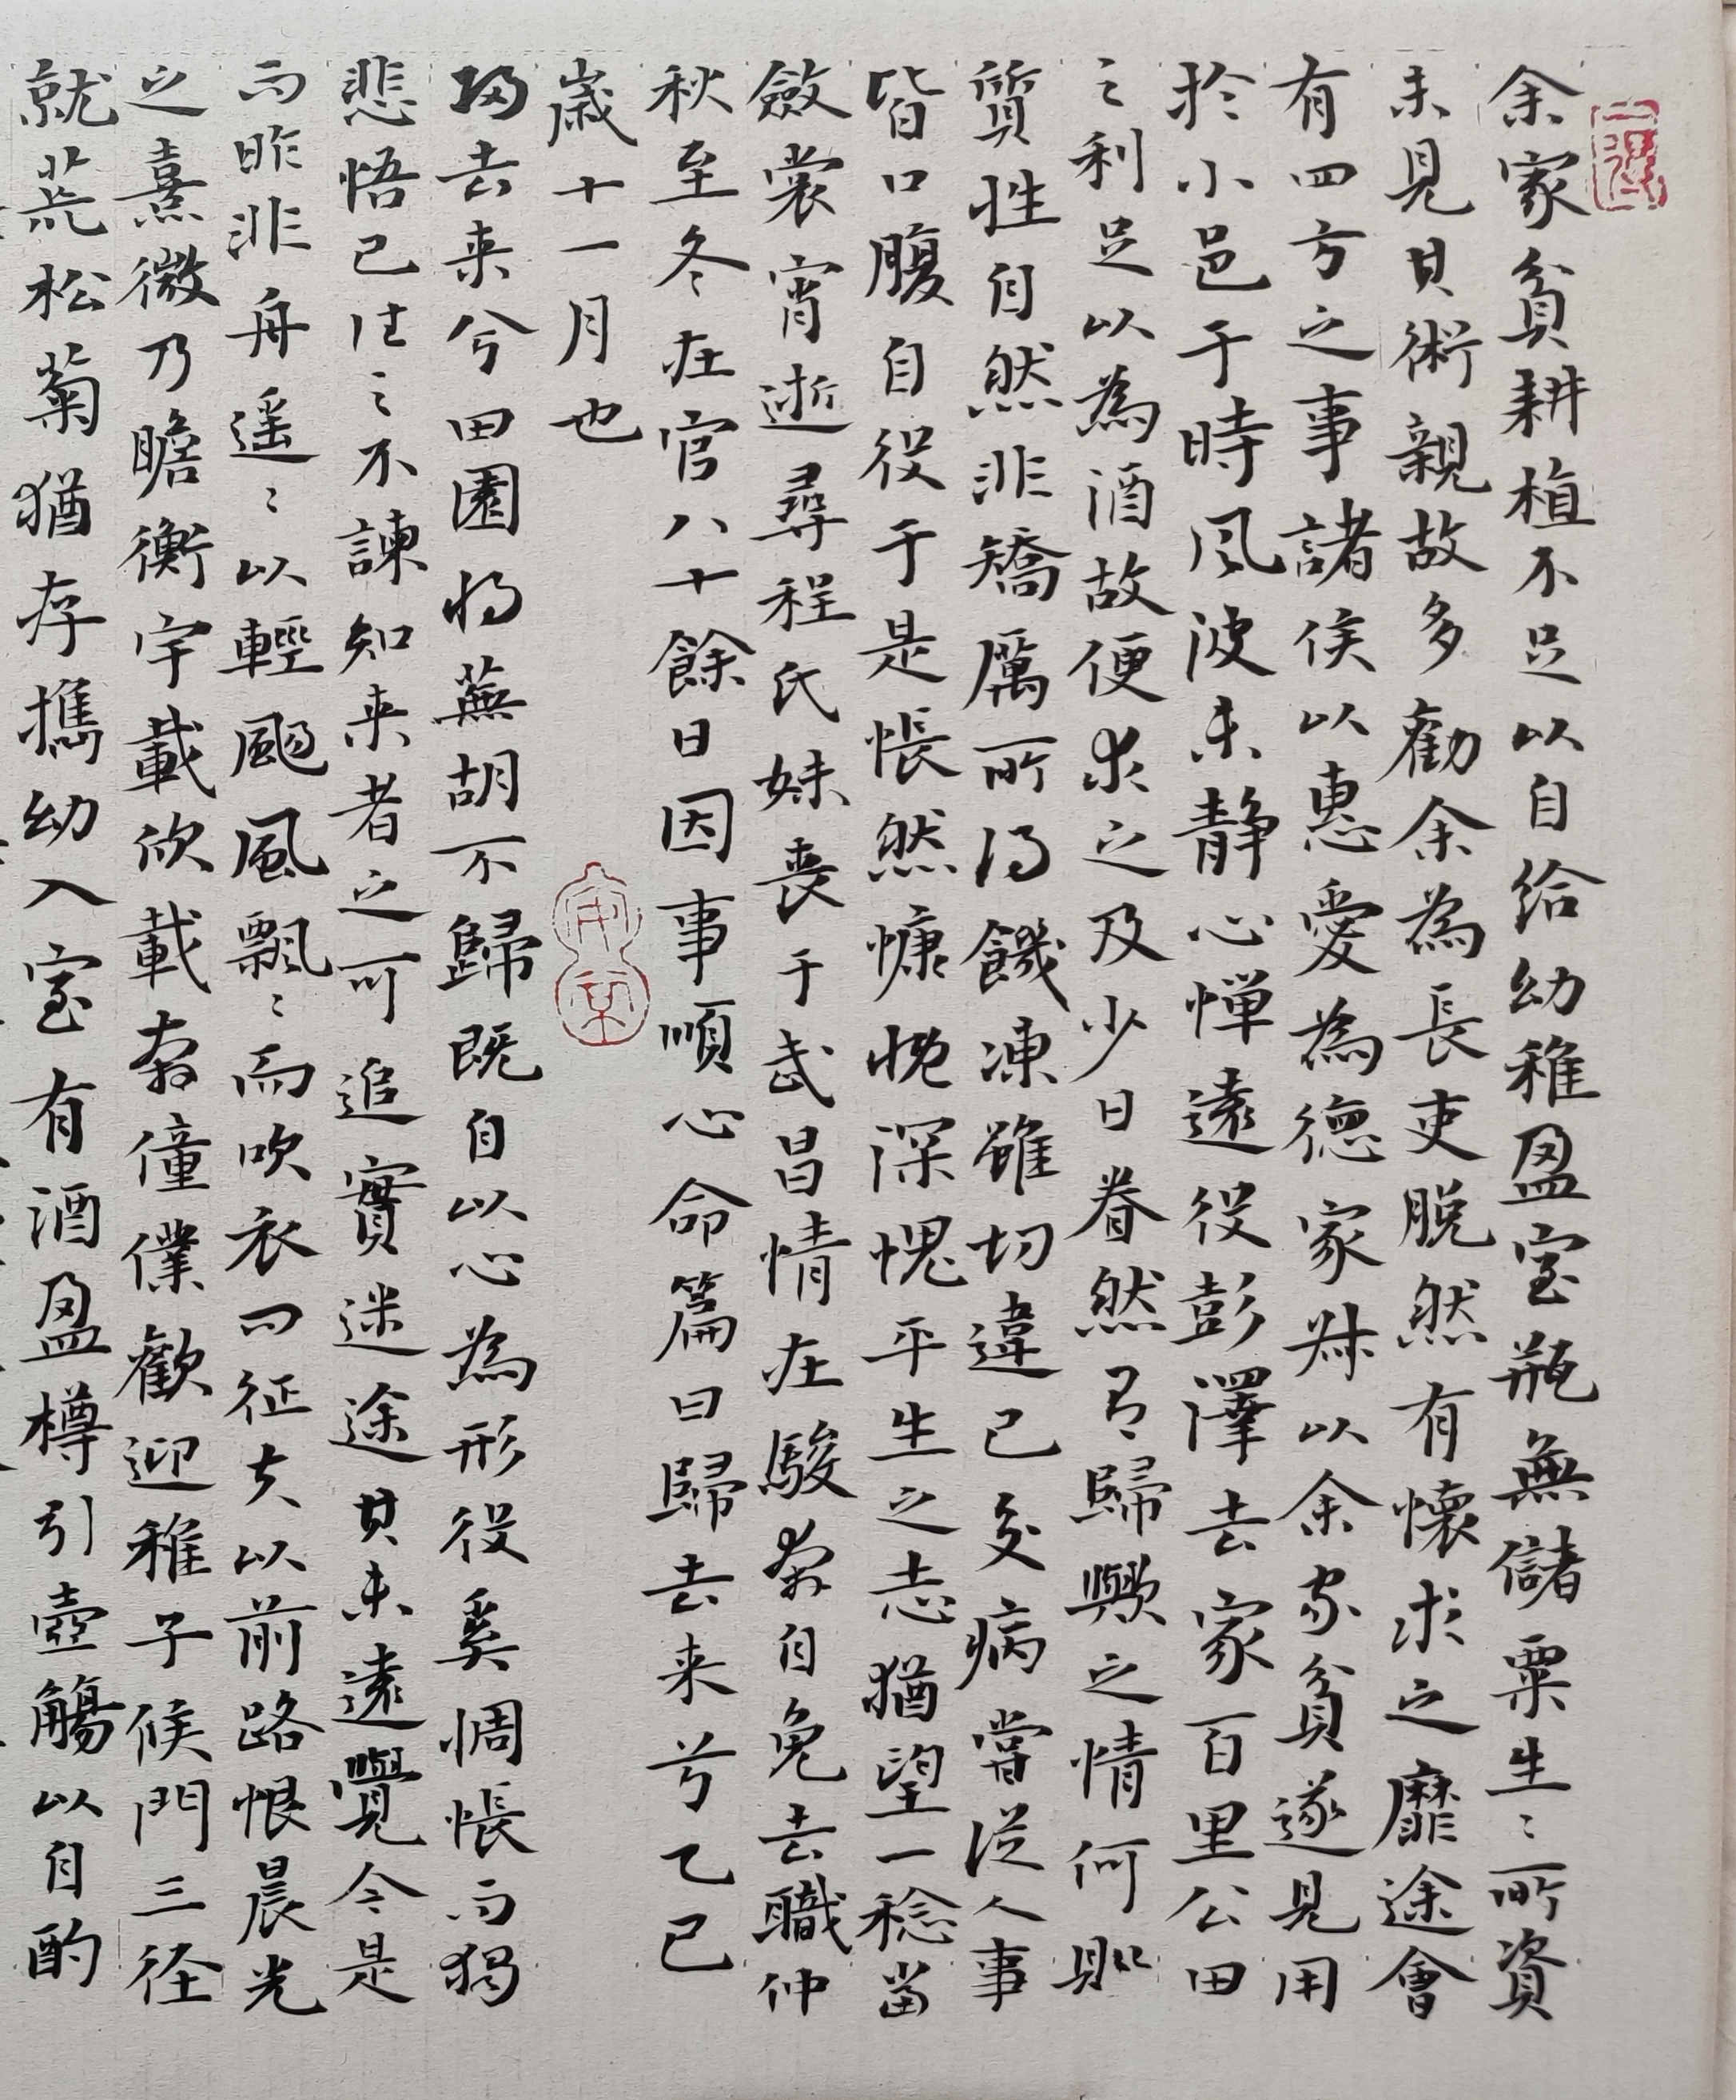 余家貧耕植不足以自給幼稚盈室瓶無儲粟生〻所資
未見其術親故多勸余為長吏脫然有懷求之靡途會
有四方之事諸侯以惠愛為德家叔以余家貧遂見用
於小邑于時風波未静心憚遠役彭澤去家百里公田
之利足以為酒故便求之及少日眷然有歸歟之情何則
質性自然非矯厲所得饑凍雖切違己交病嘗從人事
皆口腹自役于是悵然慷慨深愧平生之志猶望一稔當
斂裳宵逝尋程氏妹喪于武昌情在駿奔自免去職仲
秋至冬在官八十餘日因事順心命篇曰歸去来兮乙巳
歲十一月也
歸去来兮田園將蕪胡不歸既自以心為形役奚惆悵而獨
悲悟已往之不諫知来者之可追實迷途其未遠覺今是
而昨非舟遥〻以輕颺風飄〻而吹衣問征夫以前路恨晨光
之熹微乃瞻衡宇載欣載奔僮僕歡迎稚子候門三徑
就荒松菊猶存攜幼入室有酒盈樽引壺觴以自酌